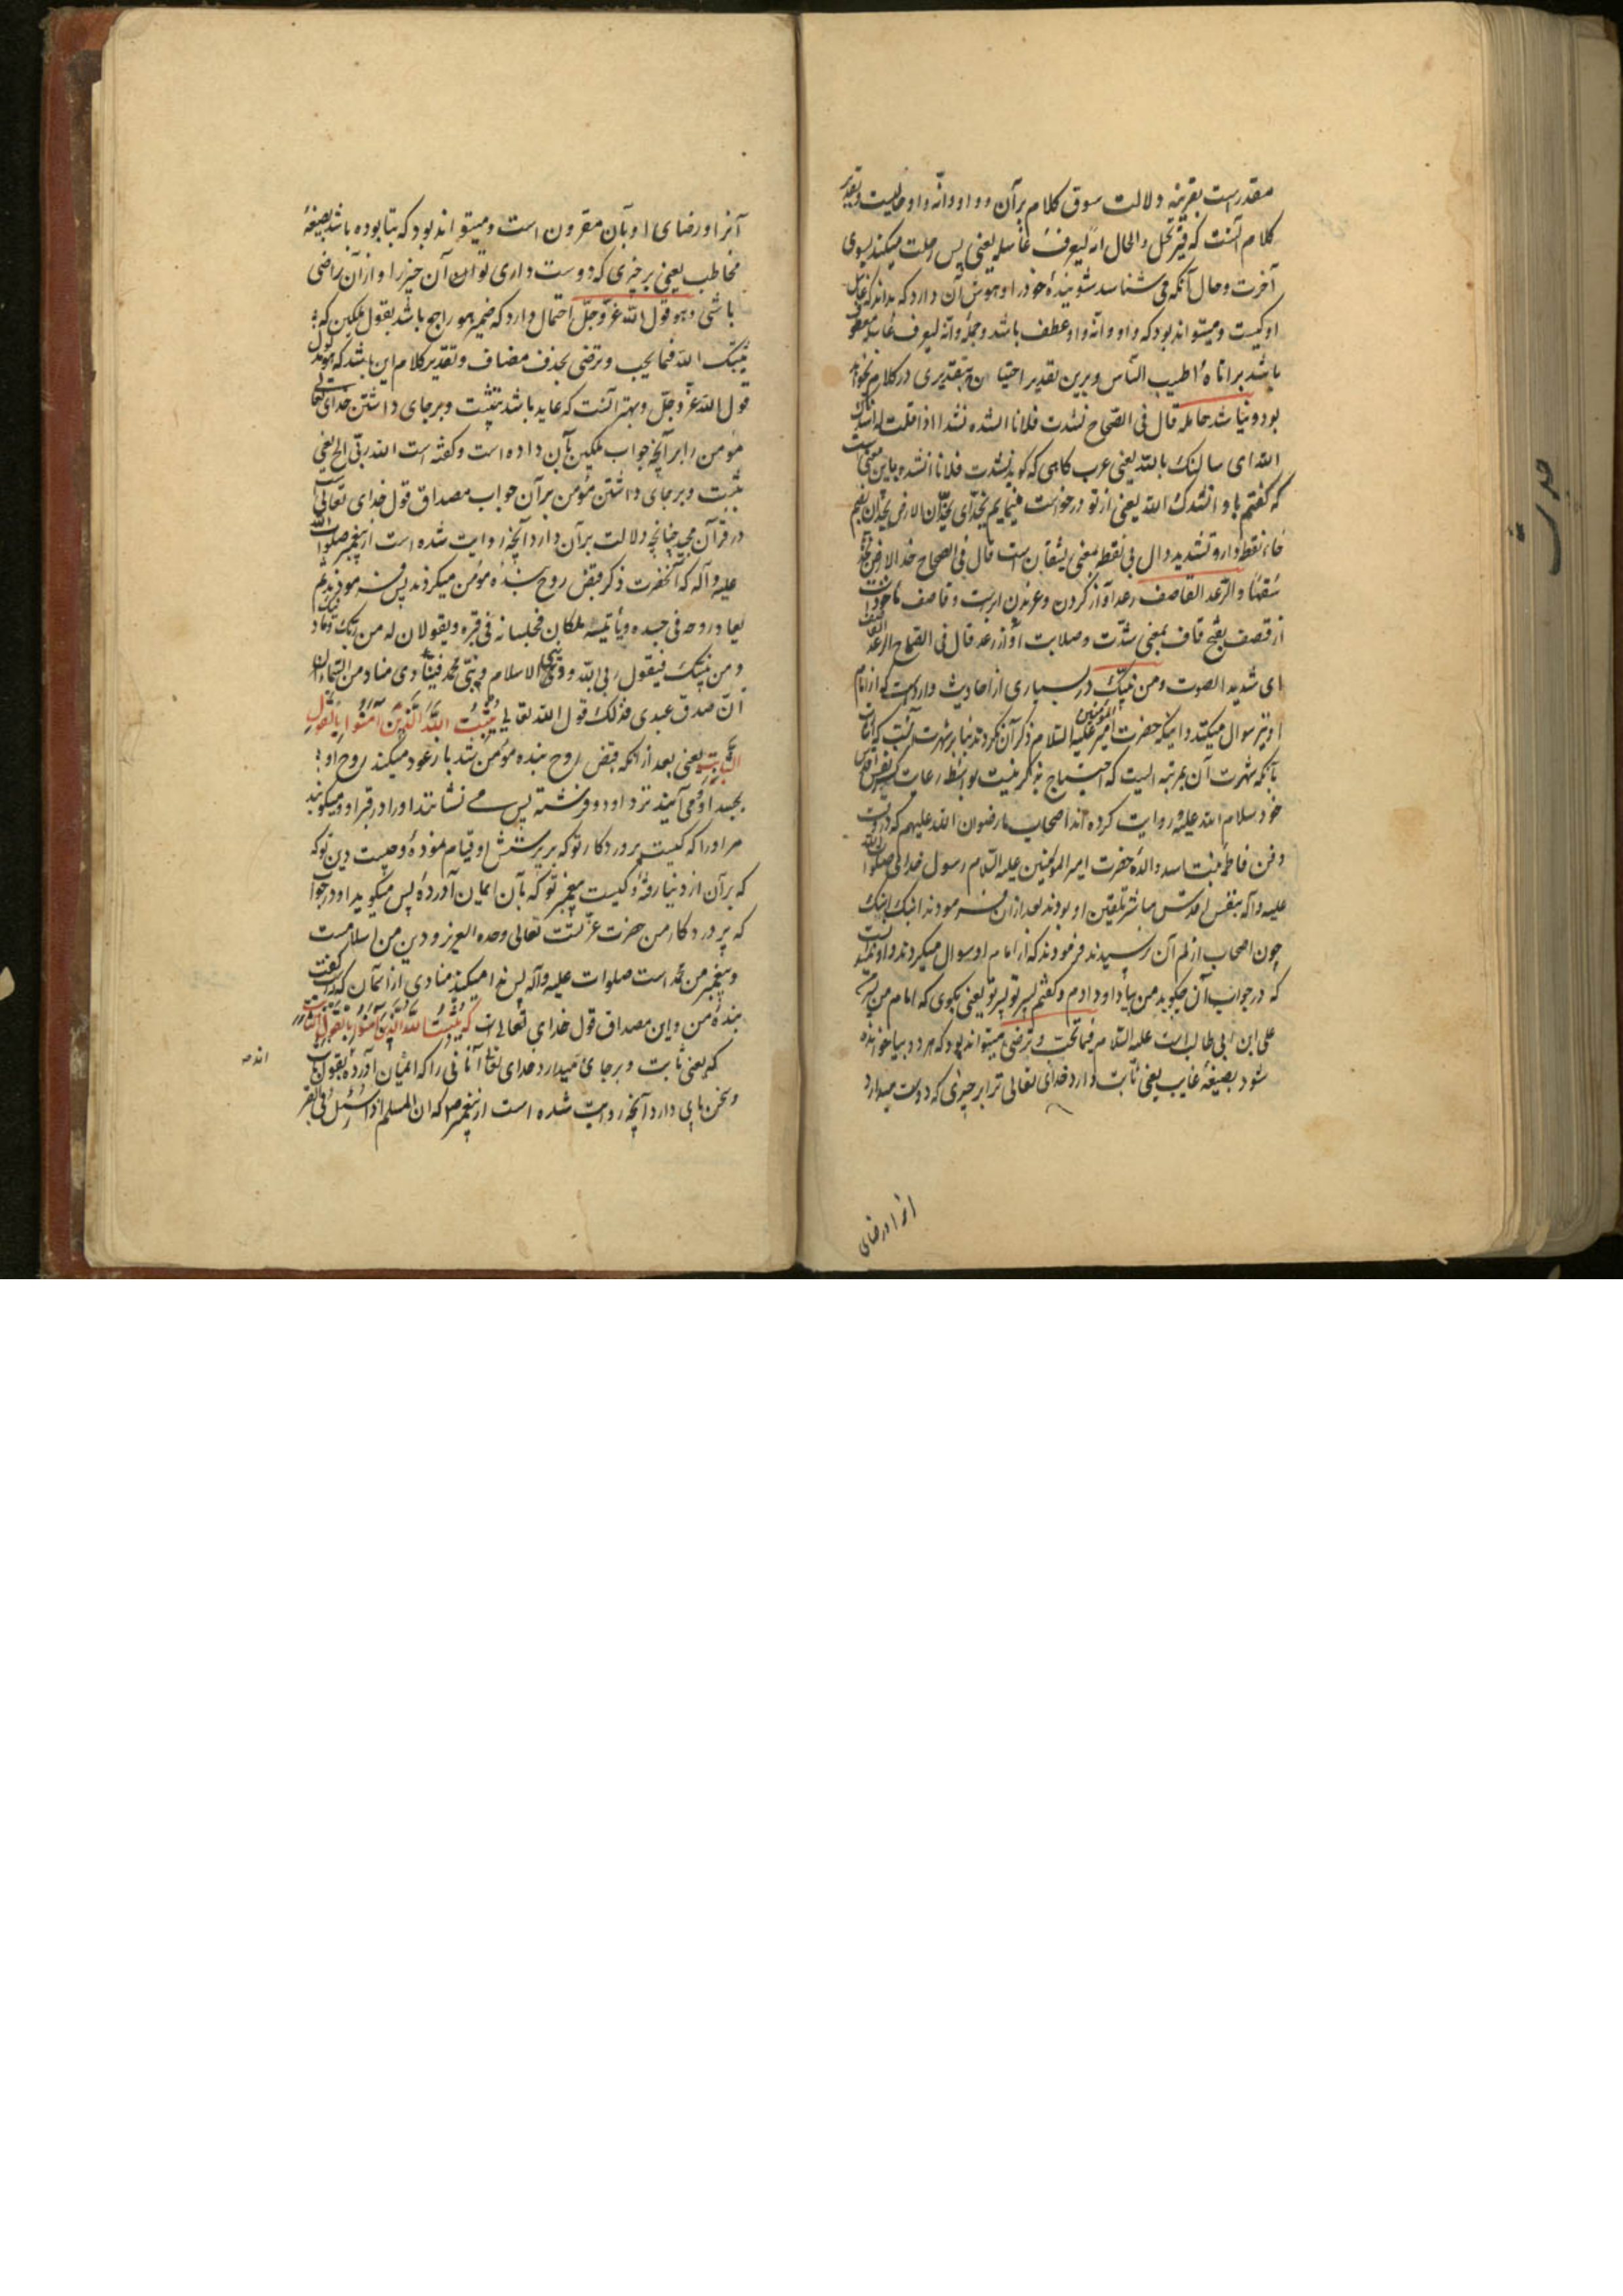 مقدر است بقرینه دلالت سوق کلام برآن و واو وانّه واو حالیست و تقدیر
کلام آنست که فیرتحل والحال انه لیعرف غاسله یعنی پس رحلت میکند بسوی
آخرت و حال آنکه می شناسد شوینده خود را و هوش آن دارد که بداند که غاسل
او کیست و میتواند بود که واو وانّه واو عطف باشد و جمله وانّه لیعرف غاسله معطوف
باشد بر اتاه اطیب الناس و برین تقدیر احتیاج بتقدیری در کلام نخواهد
بود و نباشد حامله قال فی الصّحاح نشدت فلانا انشده نشدا اذا قلت له نشدتک
الله ای سالتک بالله یعنی عرب کاهی که کوید نشدت فلانا انشده باین معنی است
که کفتم باو انشدک الله یعنی از تو درخواست مینمایم بخدای یخدّان الارض یخدّان بضم
خاء نقطه دار و تشدید دال بی نقطه بمعنی یشقان است قال فی الصحاح خد الارض
شقها والرعد القاصف رعد آواز کردن و غریدن ابرست و قاصف ماخوذ است
از قصف بفتح قاف بمعنی شدّت و صلابت آواز رعد قال فی الصّحاح الرعد القاصف
ای شدید الصوت ومن نبیّک در بسیاری از احادیث وارد است که از امام
او نیز سوال میکنند و اینکه حضرت امیر المؤمنین علیه السّلام ذکر آن نکردند بنابر شهرت آنست
بآنکه شهرت آن بمرتبه ایست که احتیاج بذکر نیست بواسطه رعایت نفس اقدس
خود سلام الله علیه و روایت کرده اند اصحاب ما رضوان الله علیهم که در وقت
دفن فاطمه بنت اسد والدهٔ حضرت امیر المؤمنین علیه السّلام رسول خدای صلوات الله
علیه وآله بنفس اقدس مباشر تلقین او بودند بعد از ان فرمودند ابنک ابنک
چون اصحاب از لم آن پرسیدند فرمودند که از امام او سوال میکردند و او ندانست
که در جواب آن چکوید من بیاد او دادم و کفتم پسر تو پسر تو یعنی بکوی که امام من پسر
علی ابن ابی طالب است علیه السّلام فیما تحب و ترضی میتواند بود که هر دو بیا خوانده
شود بصیغهٔ غایب یعنی ثابت دارد خدای تعالی ترا بر چیزی که دوست میدارد
آنرا و رضای
آنرا و رضای او بآن مقرون است و میتواند بود که بتا بوده باشد بصیغهٔ
مخاطب یعنی بر چیزی که دوست داری تو آن آن چیز را و از آن راضی
باشی وهو قول الله عزّوجلّ احتمال دارد که ضمیر هو راجع باشد بقول ملکین که
ثبتک الله فیما یحب و ترضی بحذف مضاف و تقدیر کلام این باشد که هو مدلول
قول الله عزّوجلّ و بهتر آنست که عاید باشد بتثبیت و برجای داشتن خدای تعالی
مومن را بر آنچه جواب ملکین بآن داده است و کفته است الله ربّی الخ یعنی
تثبیت و برجای داشتن مؤمن بر آن جواب مصداق قول خدای تعالی است
در قرآن مجید چنانچه دلالت بر آن دارد آنچه روایت شده است از پیغمبر صلوات الله
علیه وآله که آنحضرت ذکر قبض روح بنده مؤمن میکردند پس فرمودند ثم
یعاد روحه فی جسده ویاتیه ملکان فیجلسانه فی قبره ویقولان له من ربّک وما دینک
ومن نبیّک فیقول ربی الله ودینی الاسلام ونبیّی محمد فینادی مناد من السّماء
ان صدق عبدی فذلک قول الله تعالی یُثَبِّتُ اللّهُ الَّذِینَ آمَنُوا بِالْقَوْلِ
الثَّابِتِ یعنی بعد از آنکه قبض روح بنده مومن شد باز عود میکند روح او
بجسد او و می آیند نزد او دو فرشته پس می نشانند او را در قبر او و میکویند
مر او را که کیست پرورد کار تو که بر پرستش او قیام نمودهٔ و چیست دین تو که
که بر آن از دنیا رفتهٔ و کیست پیغمبر تو که بآن ایمان آوردهٔ پس میکوید او در جواب
که پرورد کار من حضرت عزّتست تعالی وحده العزیز و دین من اسلامست
و پیغمبر من محمّد است صلوات علیه وآله پس ندا میکند منادی از آسمان که راست کفت
بندهٔ من و این مصداق قول خدای تعالی است که یُثَبِّتُ اللّهُ الَّذِینَ آمَنُوا بِالْقَوْلِ الثَّابِتِ
که یعنی ثابت و برجای میدارد خدای تعالی آنانی را که ایمان آورده بقول ثابت
اند صه
و سخن بر جای دارد آنچه روایت شده است از پیغمبر ص که ان المسلم اذا سُئل فی القبر